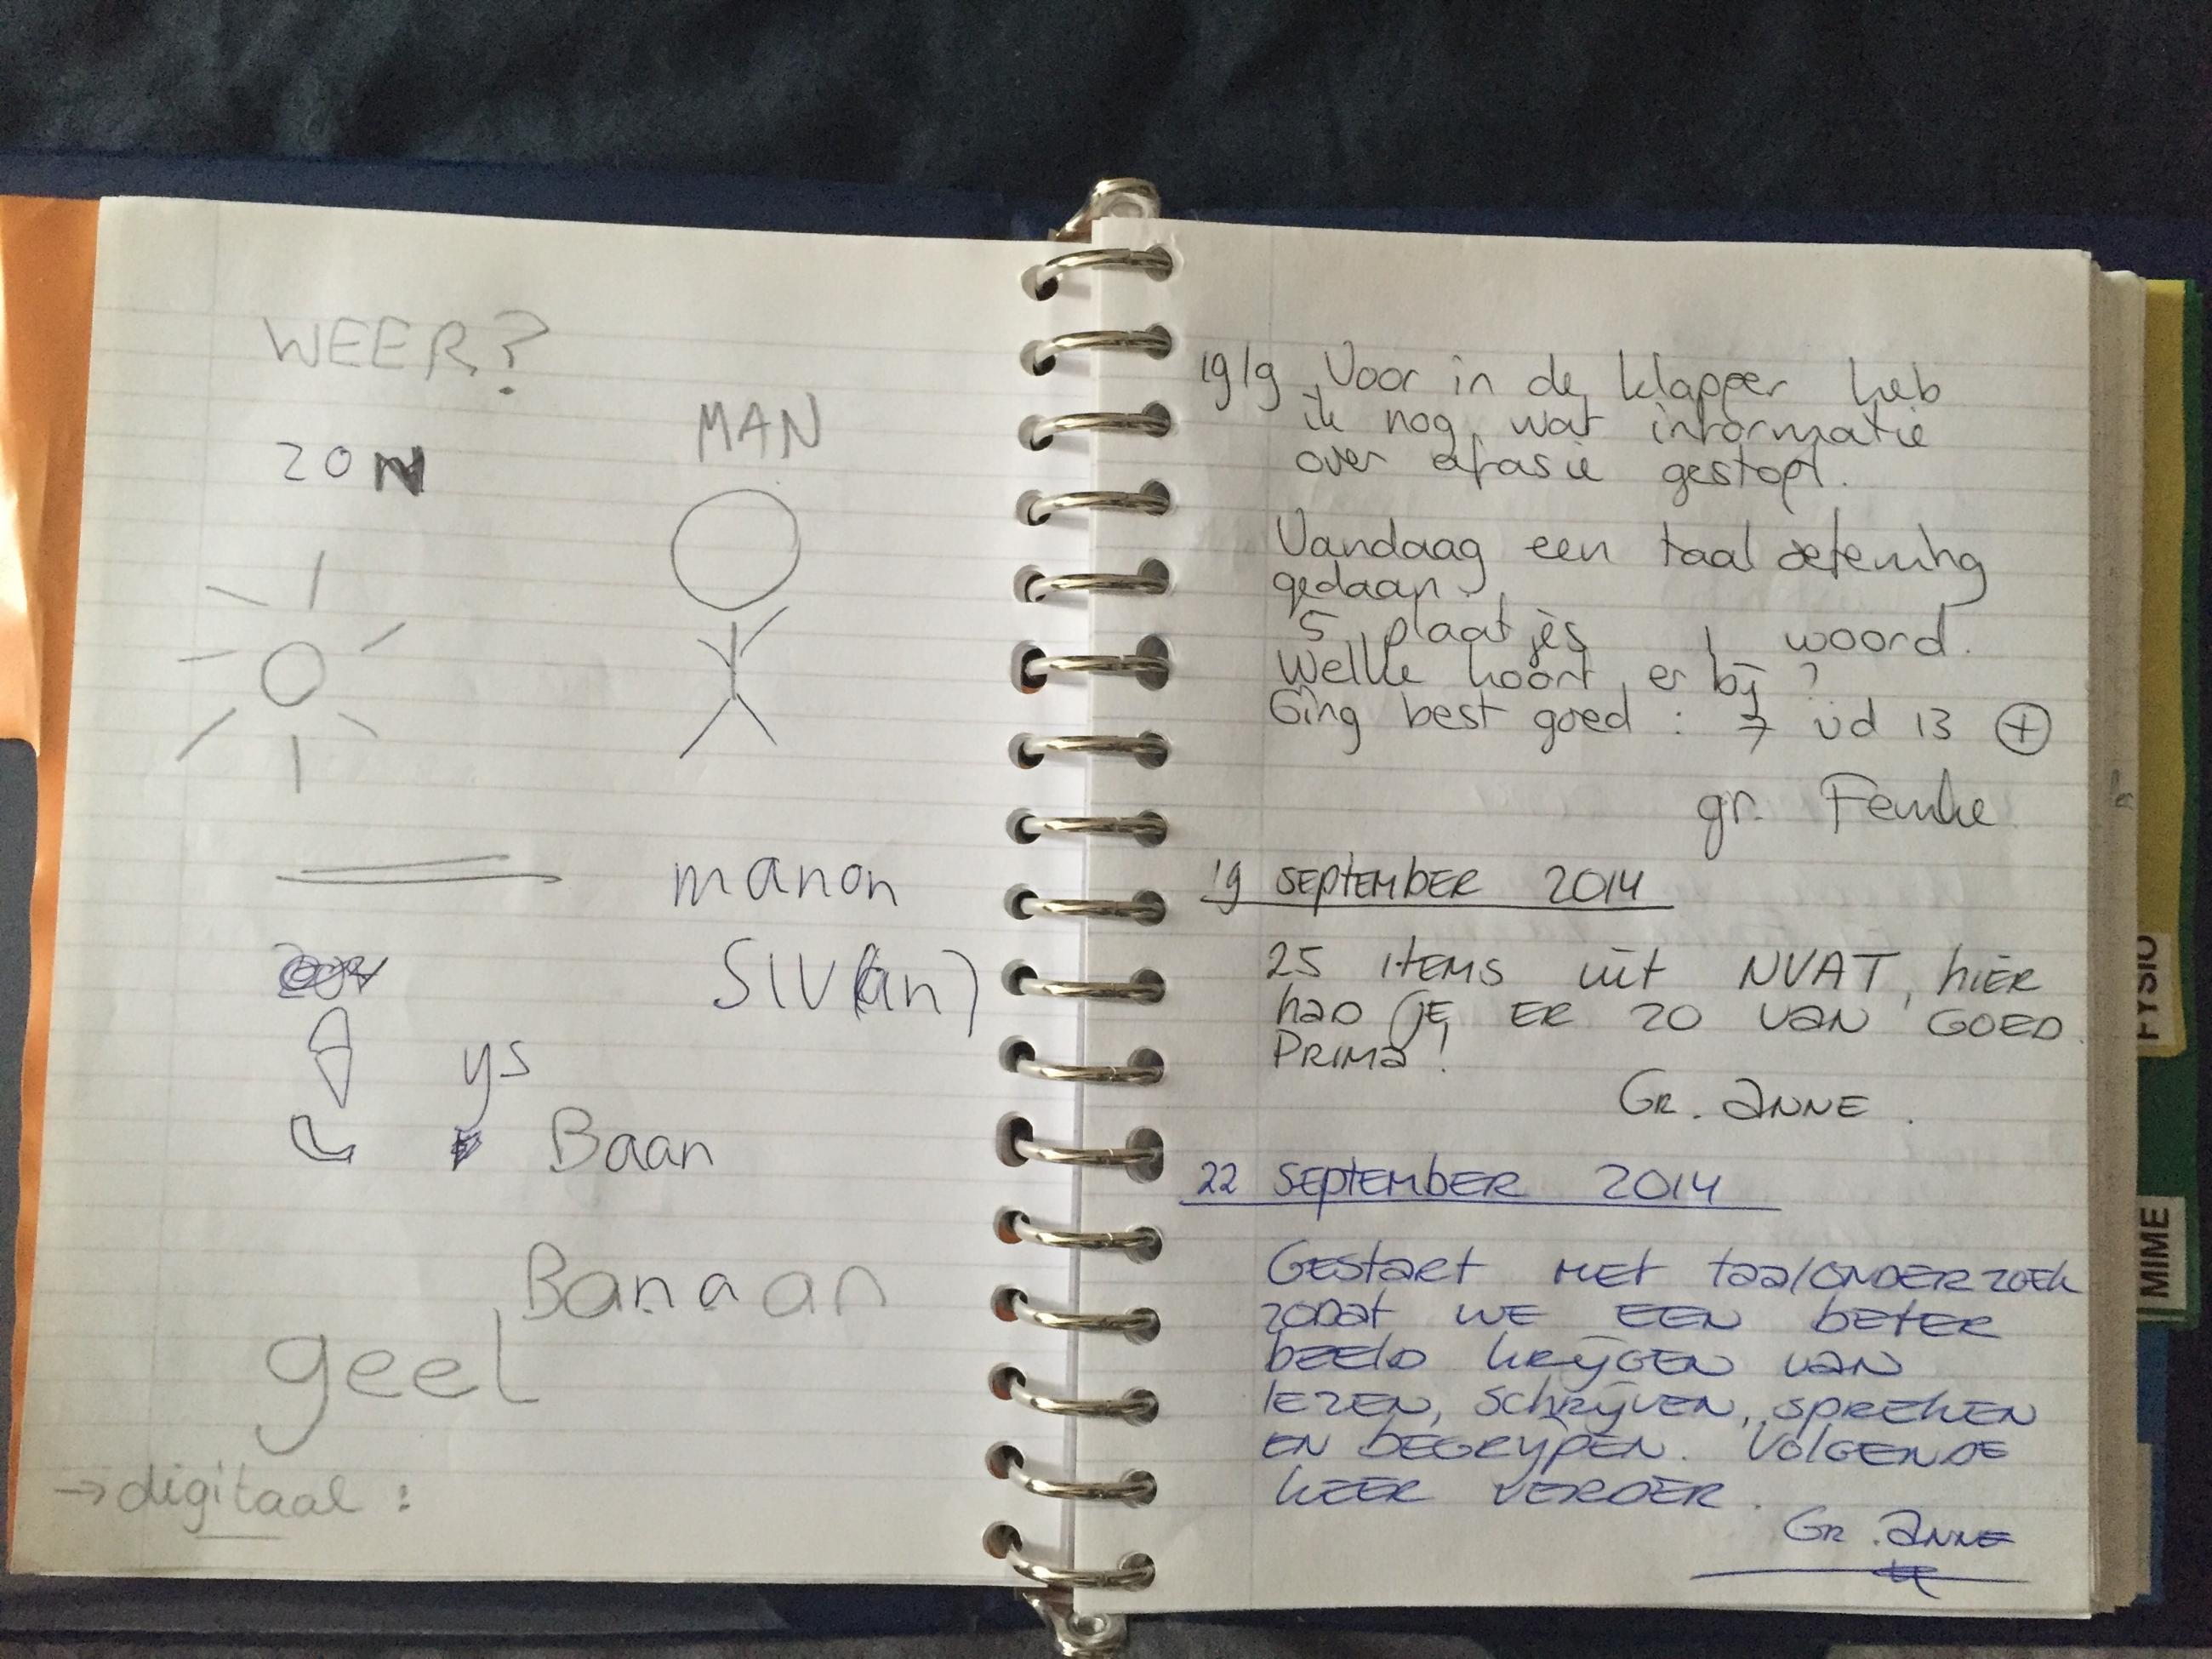 WEER?
ZON
MAN
manon
SIV(an)
ys
Baan
Banaan
geel
→ digitaal :
19/9 Voor in de klapper heb
ik nog wat informatie
over afasie gestopt.
Vandaag een taal oefening
gedaan.
5 plaatjes 1 woord.
Welke hoort er bij ?
Ging best goed : 7 vd 13 +
gr. Femke
19 SEPTEMBER 2014
25 ITEMS uit NVAT, hier
had JE ER 20 VAN GOED.
PRIMA!
GR. ANNE.
22 SEPTEMBER 2014
GESTART MET taalONDERZOEK
ZODAT WE EEN BETER
BEELD KRIJGEN VAN
LEZEN, SCHRIJVEN, SPREKEN
EN BEGRIJPEN. VOLGENDE
KEER VERDER.
GR. ANNE
FYSIO
MIME